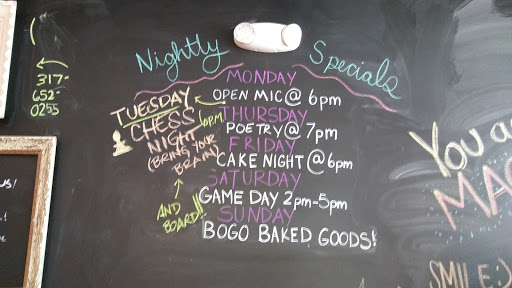 Nightly Specials
317-
652-
0255
MONDAY
OPEN MIC @ 6pm
TUESDAY
CHESS
NIGHT 6PM
(BRING YOUR
BRAIN)
AND
BOARD!!
THURSDAY
POETRY @ 7pm
FRIDAY
CAKE NIGHT @ 6pm
SATURDAY
GAME DAY 2pm-5pm
SUNDAY
BOGO BAKED GOODS!
YOU
MA
SMILE:)